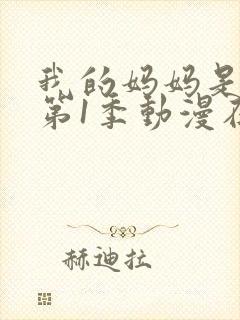 我的妈妈是
第1季動漫在
赫迪拉